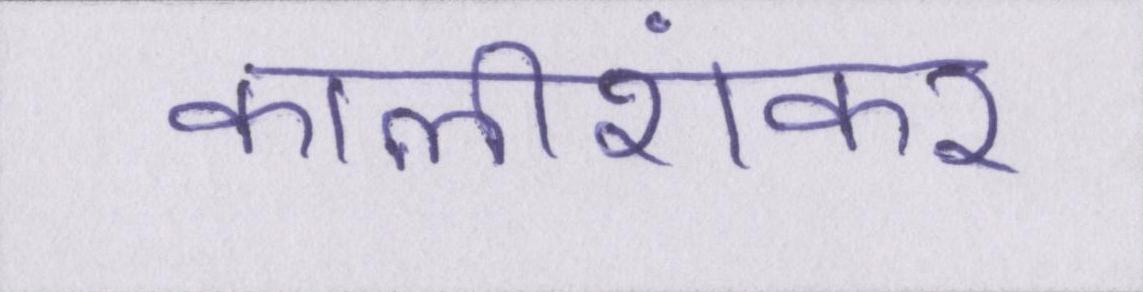 कालीशंकर